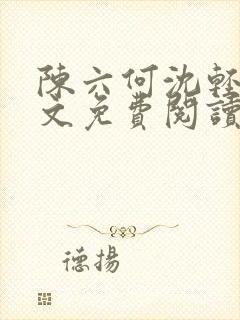 陳六何沈輕
文免費閱讀
德揚